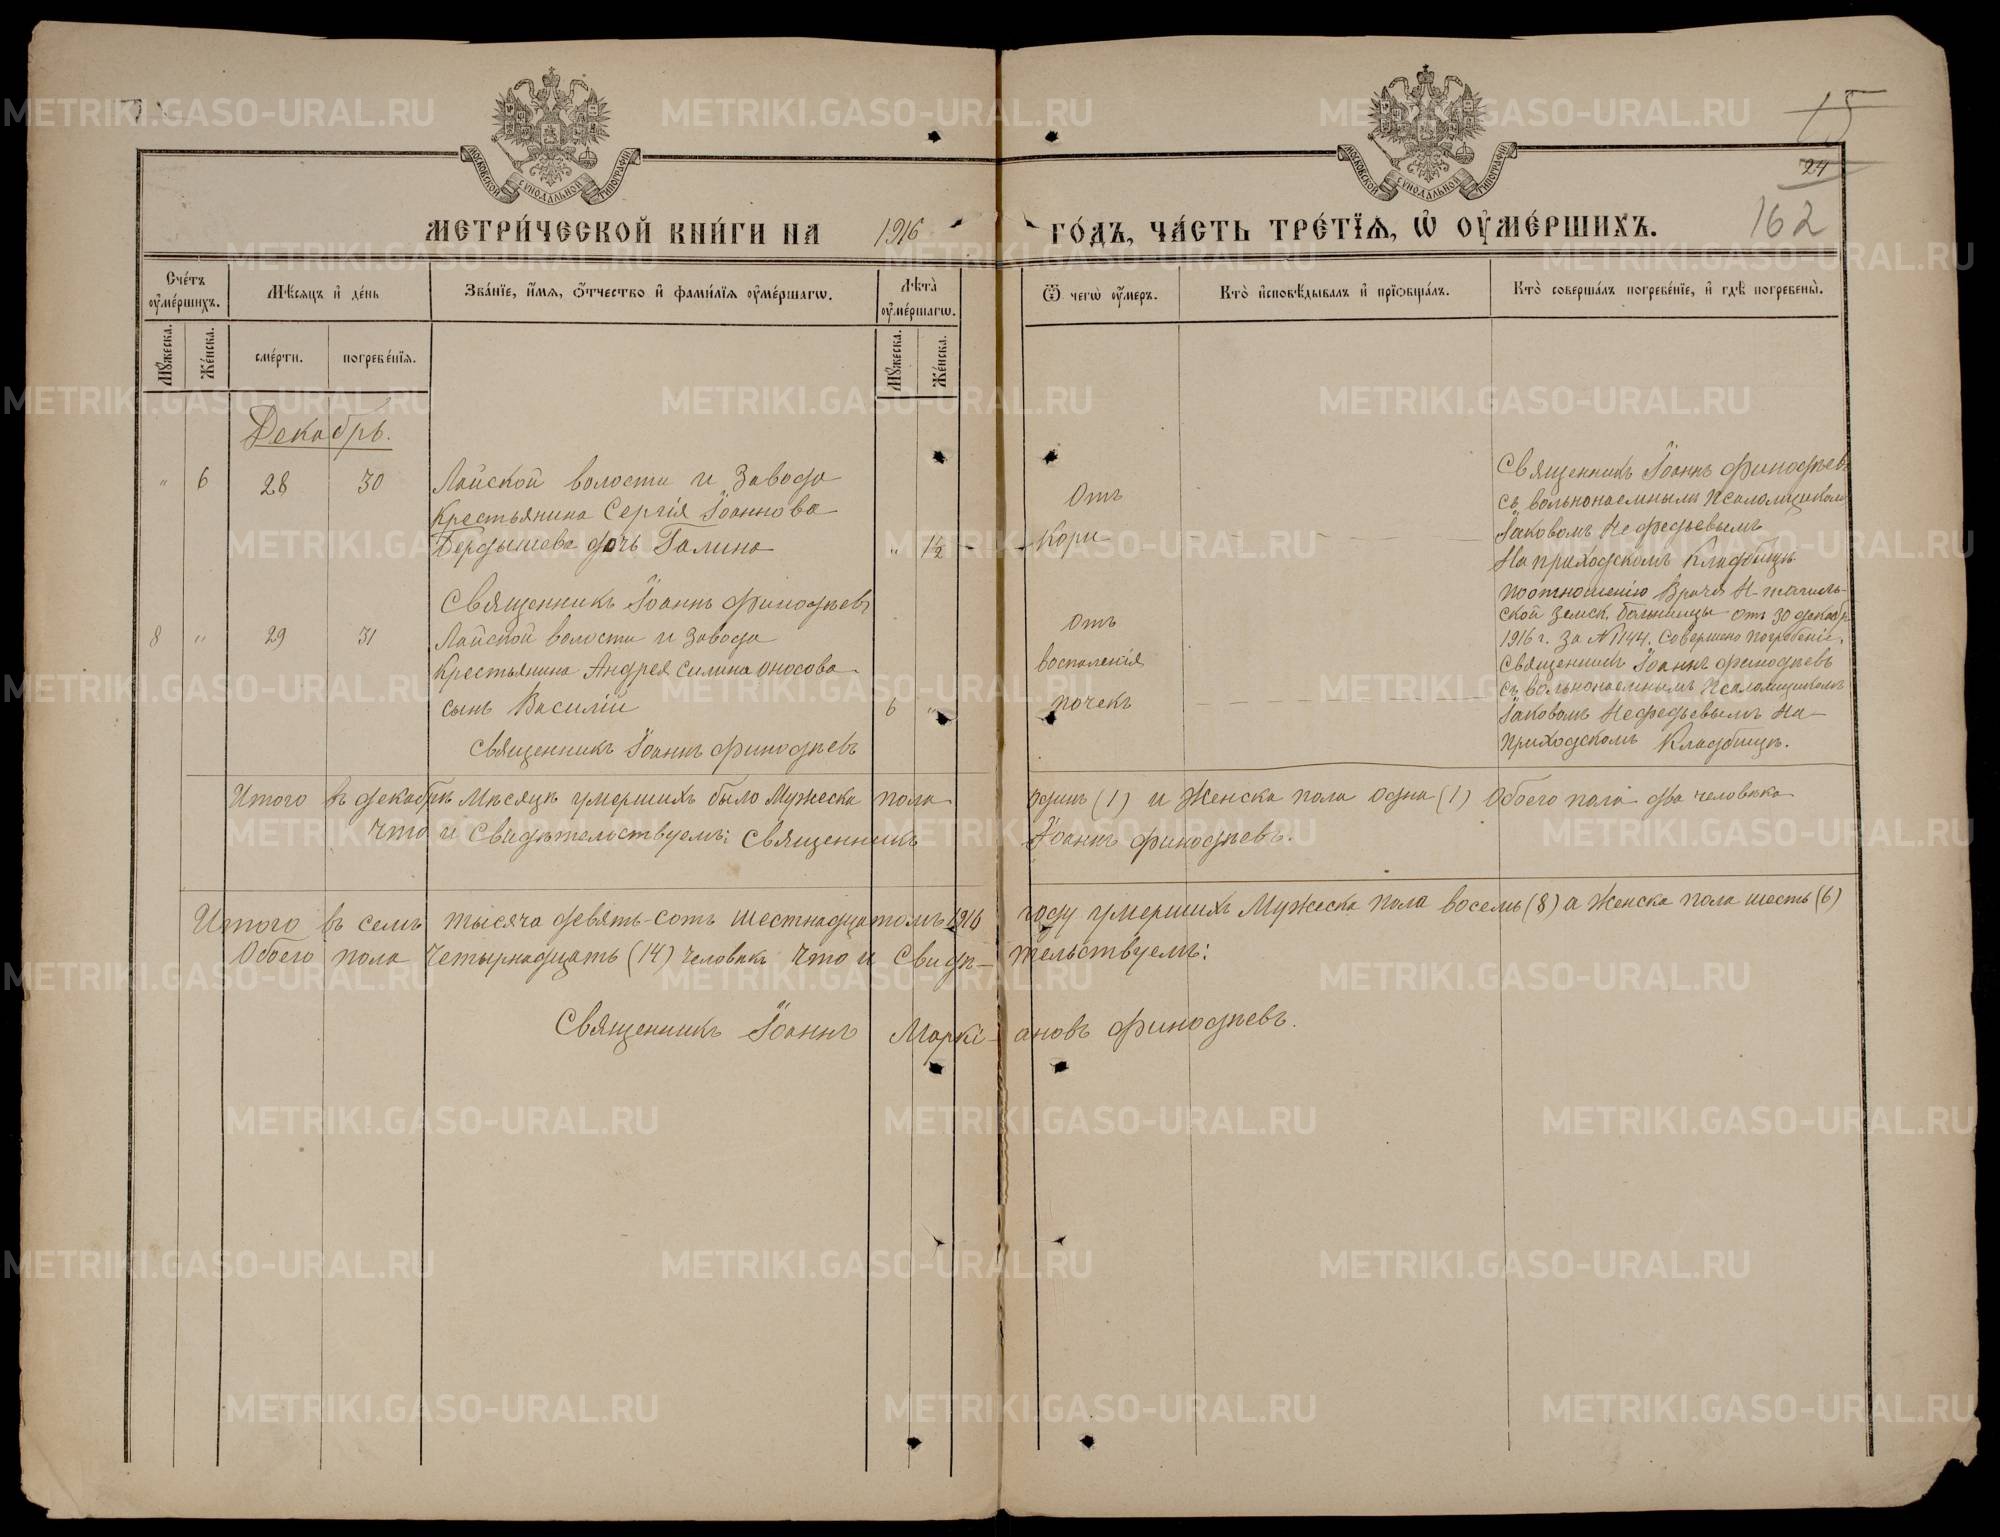 15
24
162
МОСКОВСКОЙ СѴНОДАЛЬНОЙ ТИПОГРАФІИ
МОСКОВСКОЙ СѴНОДАЛЬНОЙ ТИПОГРАФІИ
МЕТРИ́ЧЕСКОЙ КНИ́ГИ НА 1916 ГО́ДЪ, ЧА́СТЬ ТРЕ́ТЇѦ, Ѡ҆ ОУ҆МЕ́РШИХЪ.
Сче́тъ оу҆ме́ршихъ.
Мꙋ́жеска.
Же́нска.
Мѣ́сяцъ и҆ де́нь
сме́рти.
погребе́нїѧ.
Зва́нїе, и҆́мѧ, ѻ҆́тчество и҆ фами́лїѧ оу҆ме́ршагѡ.
Лѣ̑та̀ оу҆ме́ршагѡ.
Мꙋ́жеска.
Же́нска.
Ѿ чегѡ̀ оу҆́меръ.
Кто̀ и҆сповѣ́дывалъ и҆ прїѻбща́лъ.
Кто̀ соверша́лъ погребе́нїе, и҆ гдѣ̀ погребены̀.
Декабрь.
" 6 28 30
Лайской волости и Завода
Крестьянина Сергія Іоаннова
Бердышева дочь Галина
" 1½
Отъ
Кори
Священникъ Іоаннъ Финодѣевъ
съ вольнонаемнымъ псаломщикомъ
Іаковомъ Нефедьевымъ
На приходскомъ Кладбищѣ
Священникъ Іоаннъ Финодѣевъ
8 " 29 31
Лайской волости и Завода
Крестьянина Андрея Силина Оносова
сынъ Василій
6 "
Священникъ Іоаннъ Финодѣевъ
Отъ
воспаленія
почекъ
По отношенію Врача Н-тагиль-
ской Земск. больницы отъ 30 декабр
1916 г. за № 1144. Совершено погребеніе.
Священникъ Іоаннъ Финодѣевъ
съ вольнонаемнымъ псаломщикомъ
Іаковомъ Нефедьевымъ На
приходскомъ Кладбищѣ.
Итого въ декабрѣ мѣсяцѣ умершихъ было Мужеска пола одинъ (1) и Женска пола одна (1) Обоего пола два человѣка
Что и Свидѣтельствуемъ: Священникъ Іоаннъ Финодѣевъ.
Итого въ семъ тысяча девять-сотъ шестнадцатомъ 1916 году умершихъ Мужеска пола восемь (8) а Женска пола шесть (6)
Обоего пола Четырнадцать (14) человѣкъ Что и Свидѣ-тельствуемъ:
Священникъ Іоаннъ Маркі-ановъ Финодѣевъ.
METRIKI.GASO-URAL.RU